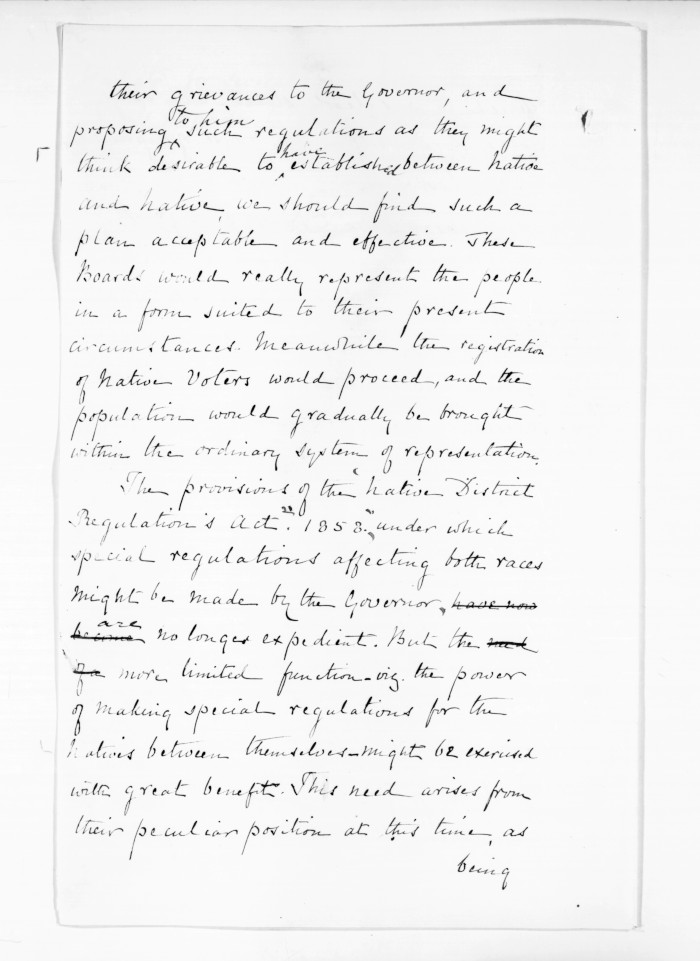 their grievances to the Governor, and
proposing to him such regulations as they might
think desirable to have established between Native
and Native, we should find such a
plan acceptable and effective. These
Boards would really represent the people
in a form suited to their present
circumstances. Meanwhile the registration
of Native Voters would proceed, and the
population would gradually be brought
within the ordinary system of representation.
The provisions of the "Native District
Regulation's Act". 1858." under which
special regulations affecting both races
might be made by the Governor, have now
became are no longer expedient. But the
of a more limited function - viz. the power
of making special regulations for the
Natives between themselves - might be exercised
with great benefit. This need arises from
their peculiar position at this time, as
being